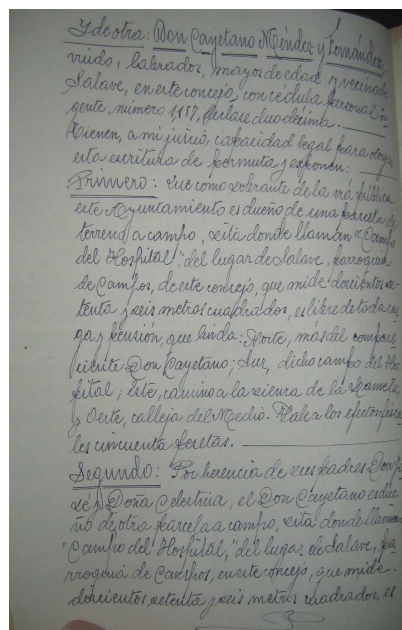 Y de otra: Don Cayetano Méndez y Fernández,
viudo, labrador, mayor de edad y vecino de
Salave, en este concejo, con cédula personal
gente, número 1157, clase duodécima.
Tienen, a mi juicio, capacidad legal para otorgar
esta escritura de permuta y exponen:
Primero: Que como sobrante de la vía pública
este Ayuntamiento es dueño de una parcela de
terreno a campo, sita donde llaman "Campo
del Hospital", del lugar de Salave, parroquia
de Campos, de este concejo, que mide doscientos se-
tenta y seis metros cuadrados, es libre de toda car-
ga y pensión, que linda: Norte, más del compare-
ciente Don Cayetano; Sur, dicho campo del Hos-
pital; Este, camino a la
y Oeste, calleja del Medio. Vale a los efectos fisca-
les cincuenta pesetas.
Segundo: Por herencia de sus padres Don Jo-
sé y Doña Celestina, el Don Cayetano es due-
ño de otra parcela a campo, sita donde llaman
"Campo del Hospital," del lugar de Salave, pa-
rroquia de Campos, en este concejo, que mide
doscientos setenta y seis metros cuadrados, es